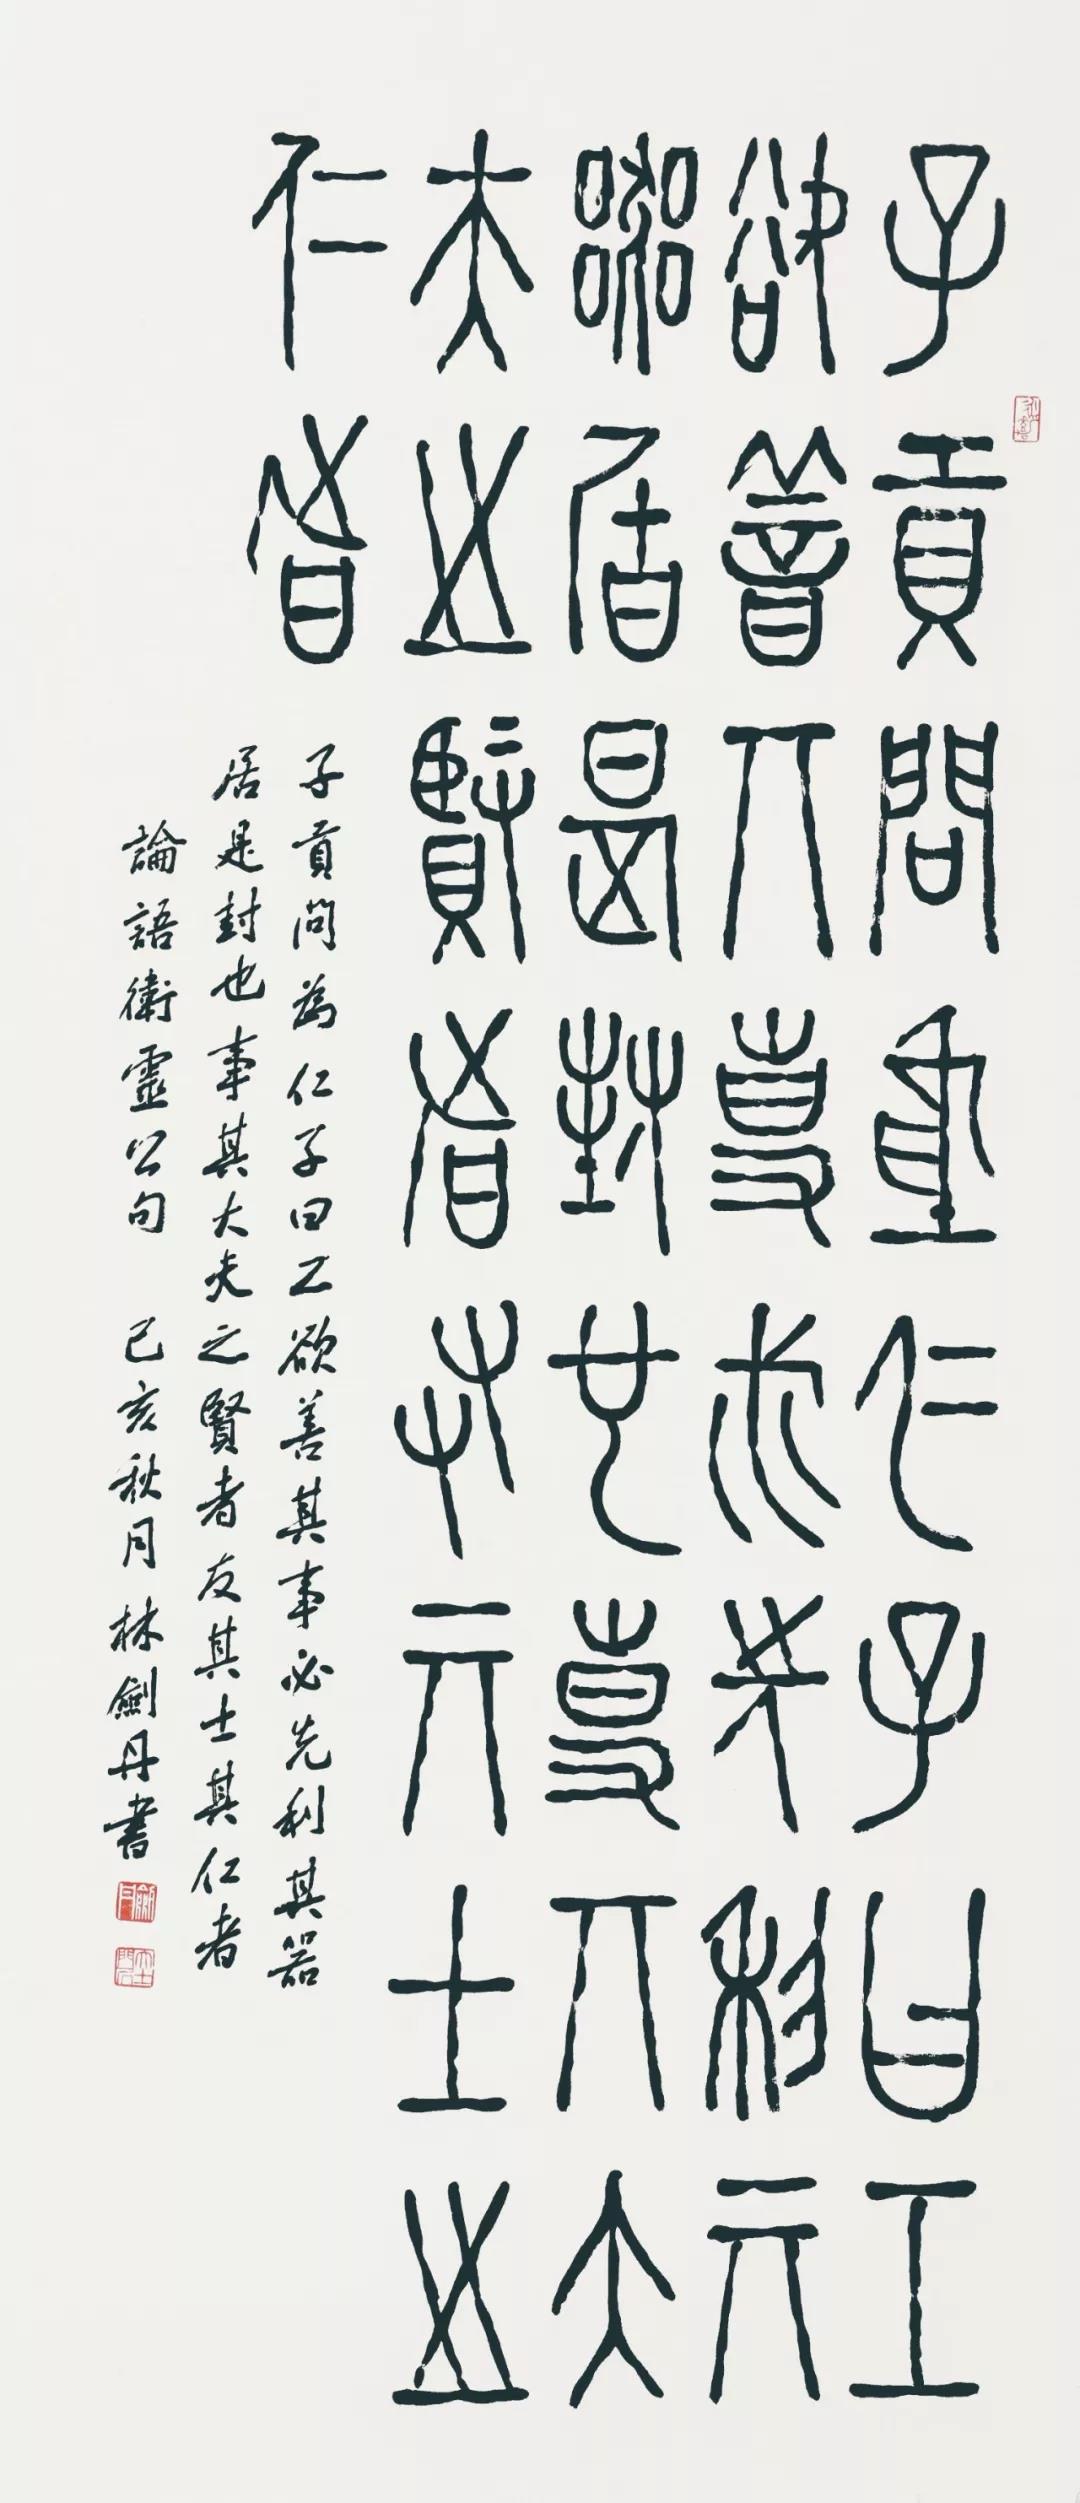 子貢問為仁子曰工
欲善其事必先利其
器居是封也事其大
夫之賢者友其士之
仁者
子貢問為仁子曰工欲善其事必先利其器
居是封也事其大夫之賢者友其士其仁者
論語衛靈公句 己亥秋月林劍丹書